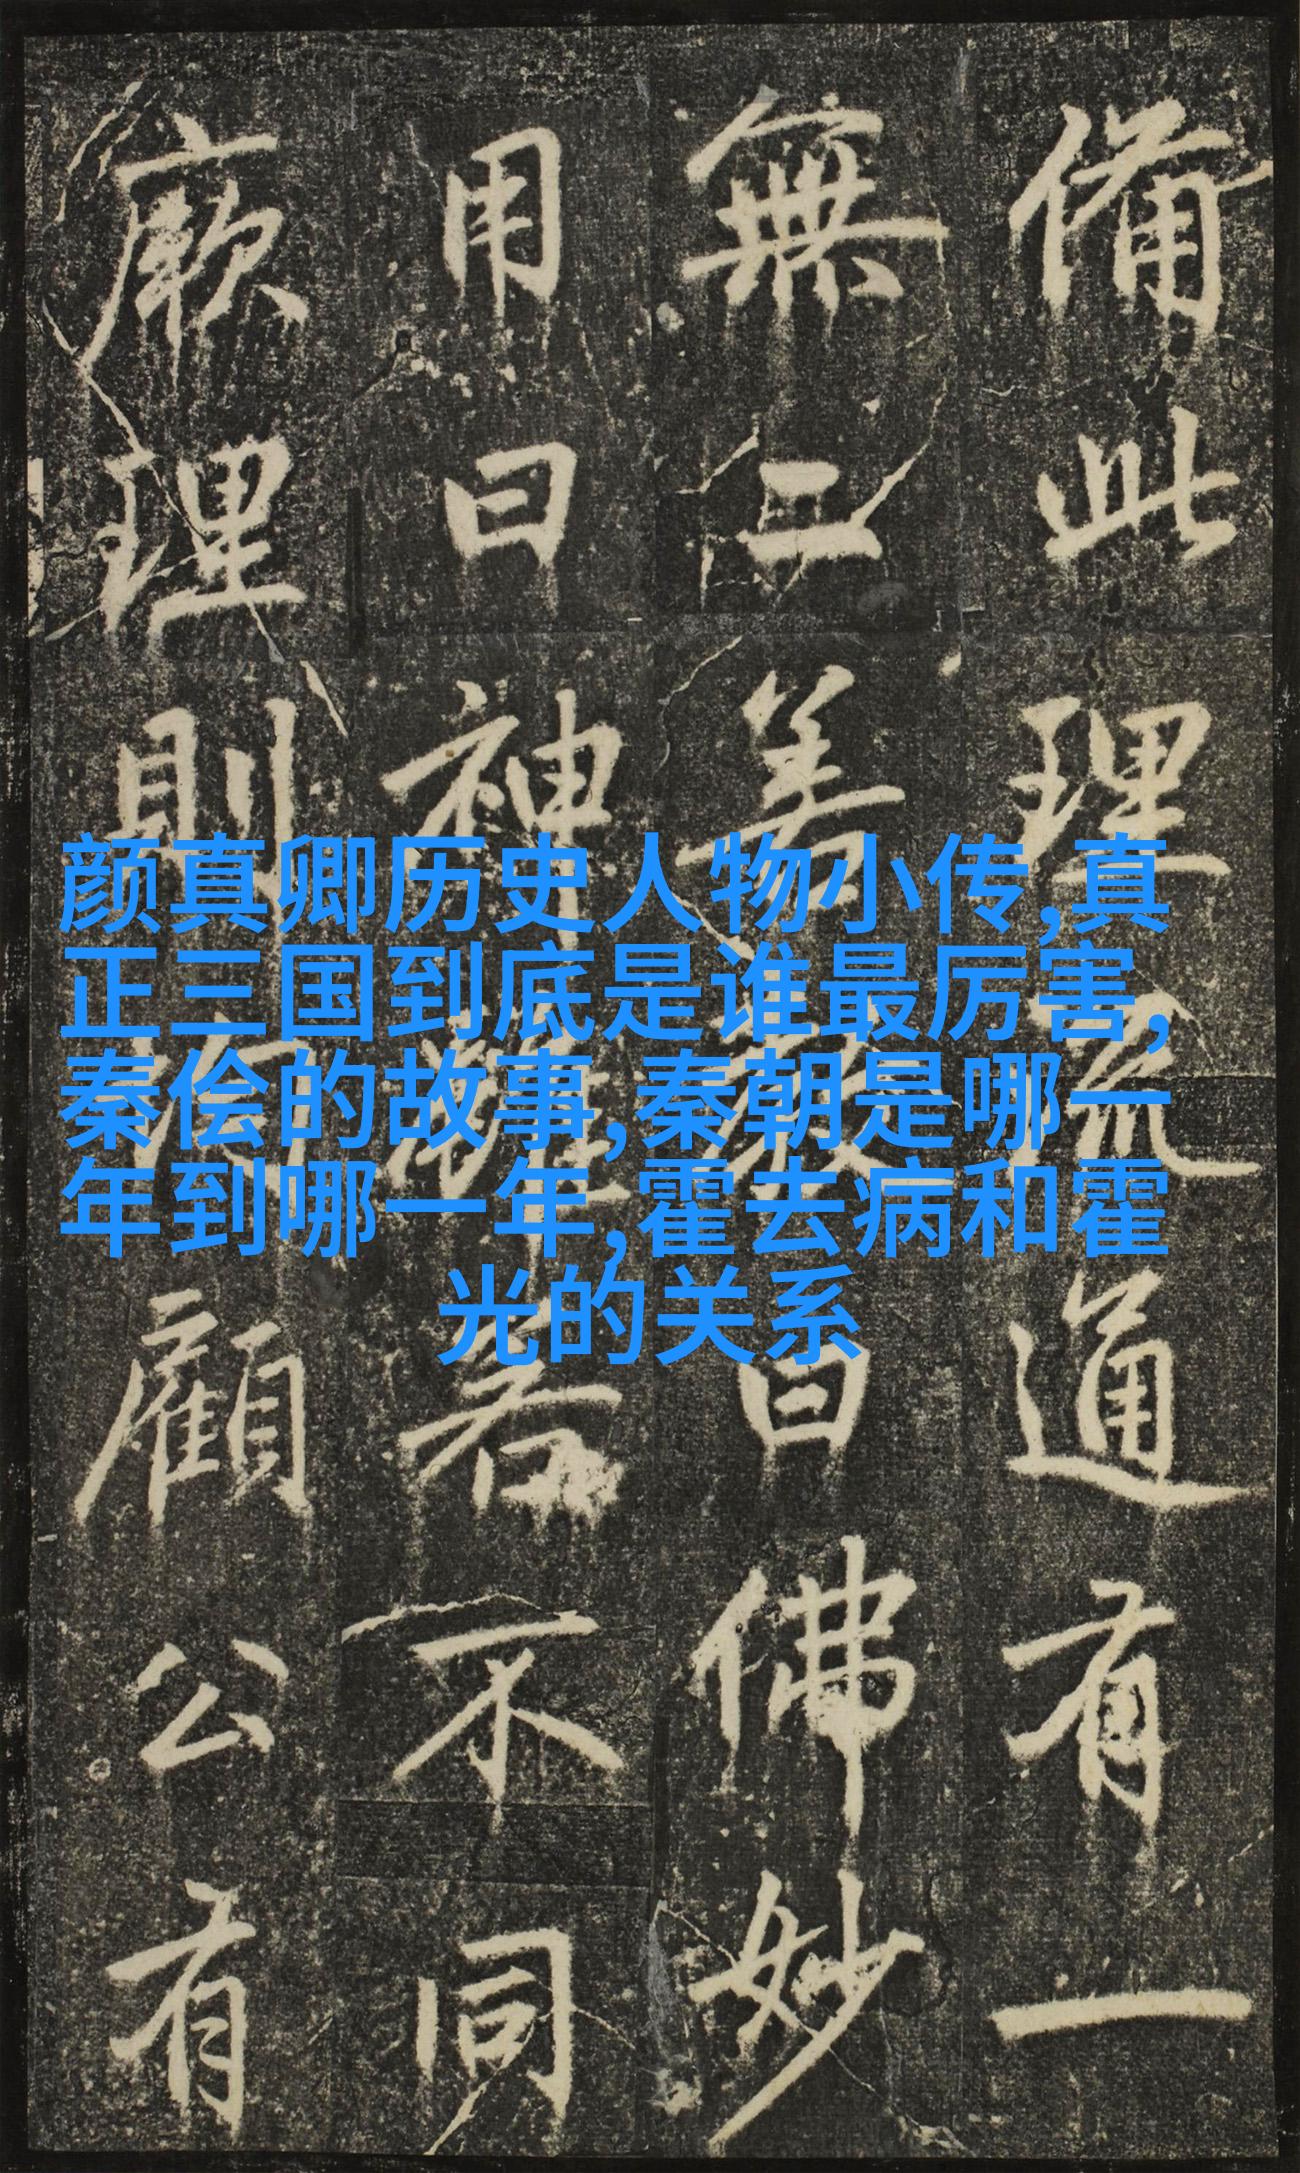 颜真卿历史人物小传,真
正三国到底是谁最厉害,
秦侩的故事,秦朝是哪一
年到哪一年,霍去病和霍
光的关系
備此理通有一
無曰佛妙
用曰神若不同
厥理則顧公有